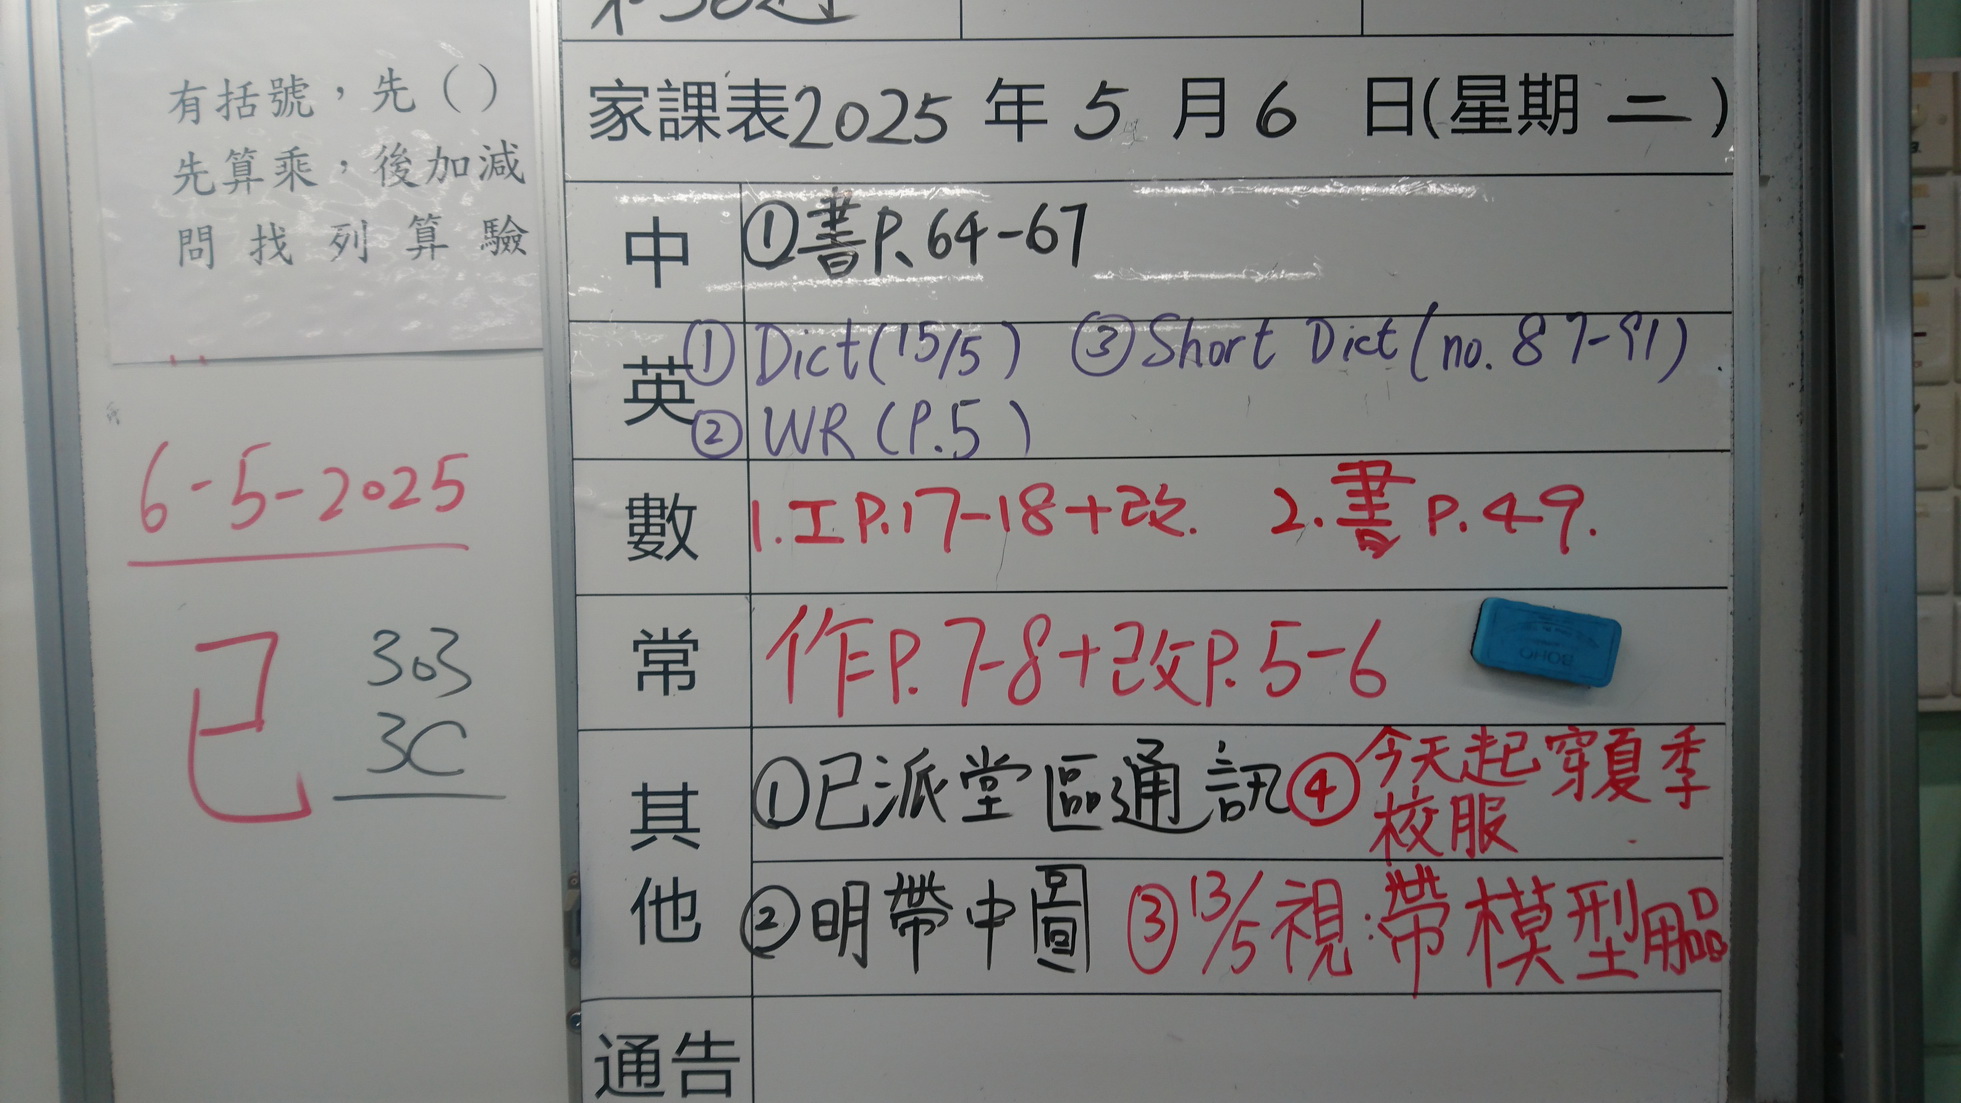 有括號，先（ ）
先算乘，後加減
問找列算驗
6-5-2025
已
303
3C
家課表2025年5月6日(星期二)
中 ①書P.64-67
英 ①Dict(15/5) ③Short Dict(no.87-91)
②WR(P.5)
數 1.工P.17-18+改. 2.書P.49.
常 作P.7-8+改P.5-6
其他 ①已派堂區通訊 ④今天起穿夏季
校服
②明帶中圖 ③13/5視:帶模型用品
通告